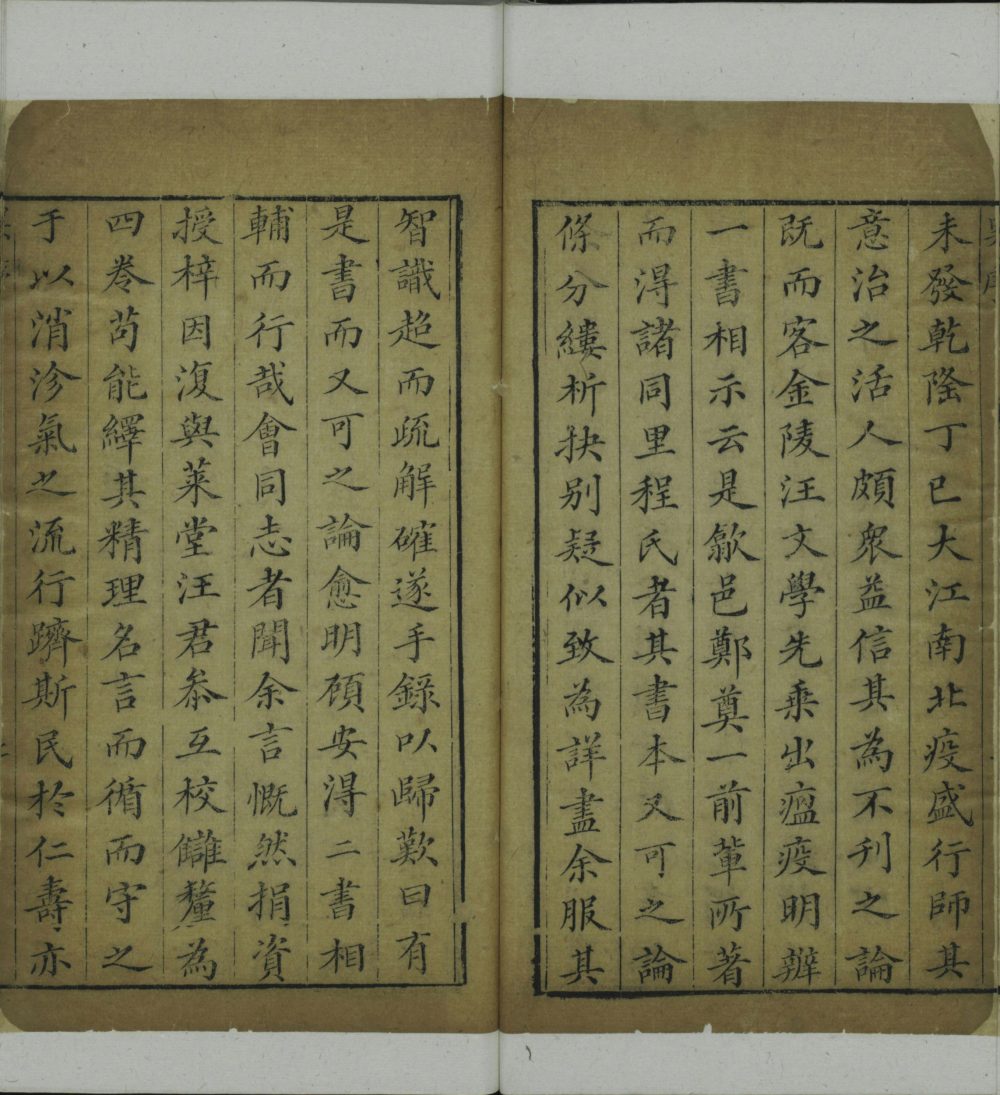 未發乾隆丁巳大江南北疫盛行師其
意治之活人頗衆益信其為不刊之論
既而客金陵汪文學先乗出瘟疫明辨
一書相示云是歙邑鄭奠一前輩所著
而得諸同里程氏者其書本又可之論
條分縷析抉别疑似致為詳盡余服其
智識超而疏解確遂手錄以歸歎曰有
是書而又可之論愈明顧安得二書相
輔而行哉會同志者聞余言慨然捐資
授梓因復與萊堂汪君叅互校讎釐為
四卷苟能繹其精理名言而循而守之
于以消沴氣之流行躋斯民於仁壽亦